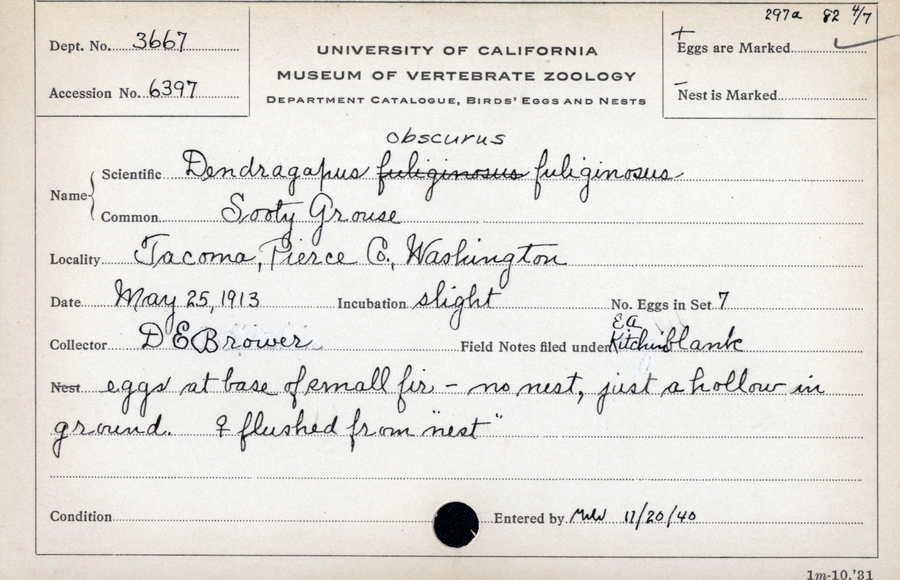 297a 82 4/7
Dept. No. 3667
UNIVERSITY OF CALIFORNIA
+
Eggs are Marked
MUSEUM OF VERTEBRATE ZOOLOGY
Accession No. 6397
DEPARTMENT CATALOGUE, BIRDS' EGGS AND NESTS
–
Nest is Marked
obscurus
Name { Scientific Dendragapus fuliginosus fuliginosus
Common Sooty Grouse
Locality Tacoma, Pierce Co., Washington
Date May 25, 1913 Incubation slight No. Eggs in Set 7
Collector D E Brower Field Notes filed under EA Kitchin blank
Nest eggs at base of small fir – no nest, just a hollow in
ground. ♀ flushed from "nest"
Condition Entered by MW 11/20/40
1m-10,'31